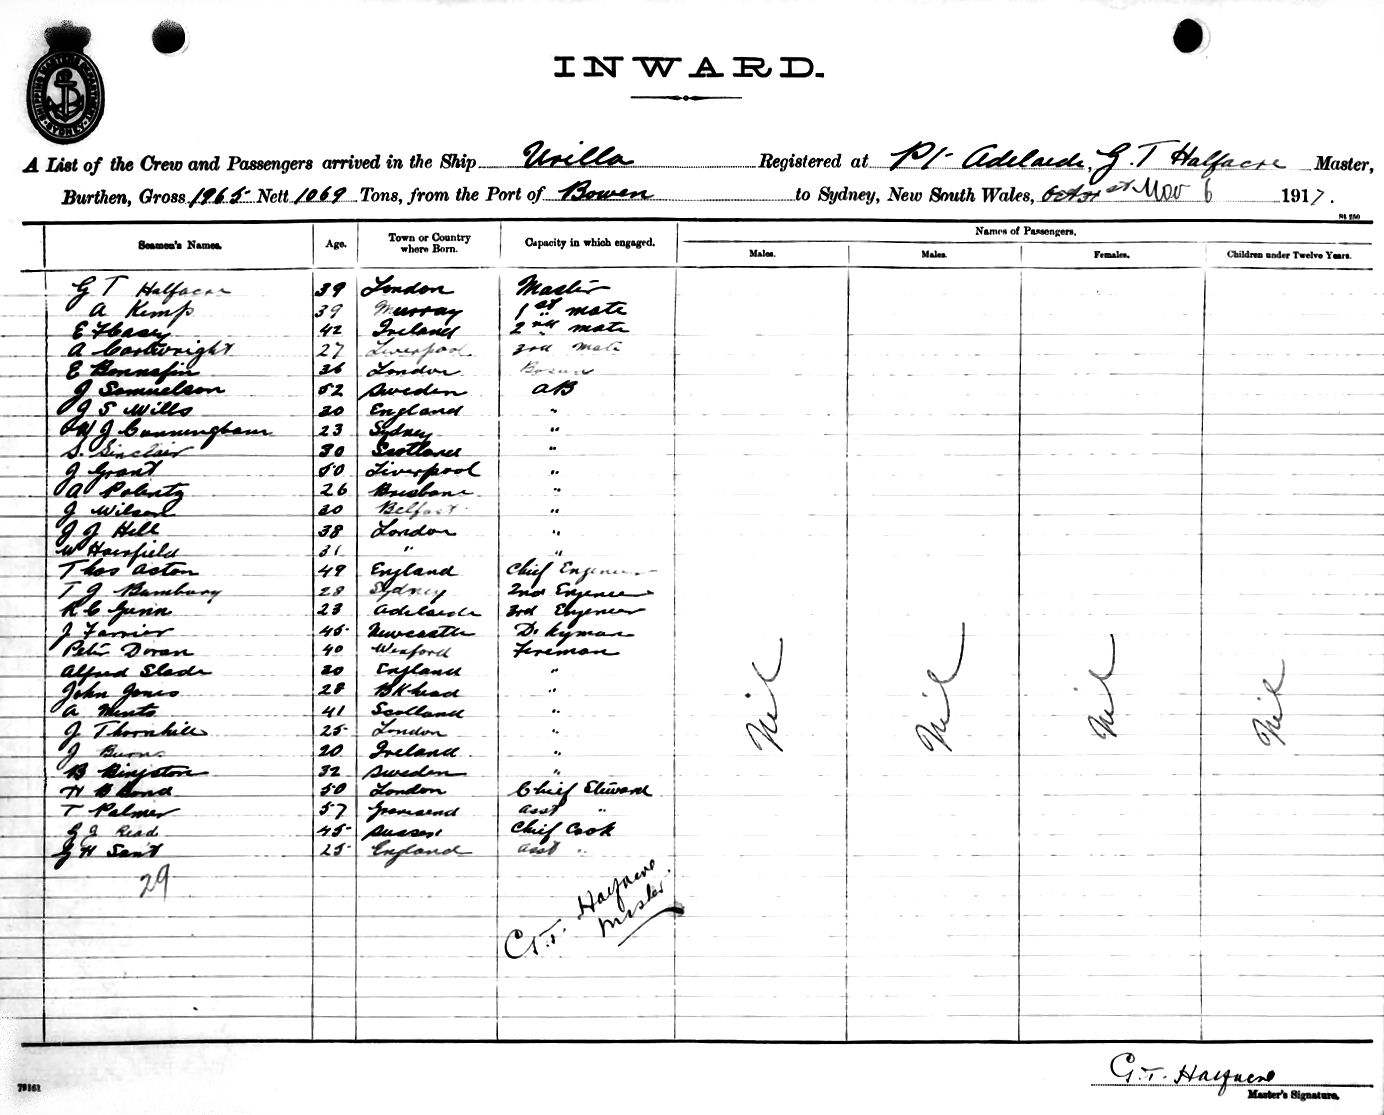 SHIPPING & SEAMEN SYDNEY
INWARD.
A List of the Crew and Passengers arrived in the Ship Urilla Registered at Pt Adelaide, G. T Halfacre Master,
Burthen, Gross 1965 Nett 1069 Tons, from the Port of Bowen to Sydney, New South Wales, Nov 6 1917.
St 250
Seamen's Names. Age. Town or Country where Born. Capacity in which engaged. Names of Passengers.
Males. Males. Females. Children under Twelve Years.
G T Halfacre 39 London Master
A Kemp 39 Murray 1st mate
E F Casey 42 Ireland 2nd mate
A Cartwright 27 Liverpool 3rd mate
E Bonnefin 36 London Bosun
J Samuelson 52 Sweden AB
J S Wills 20 England "
W J Cunningham 23 Sydney "
S. Sinclair 30 Scotland "
J Grant 50 Liverpool "
A 26 Brisbane "
J Wilson 20 Belfast "
J J Hill 38 London "
W Hairfield 31 " "
Thos Aston 49 England Chief Engineer
T J Bumbury 28 Sydney 2nd Engineer
R C Gunn 23 Adelaide 3rd Engineer
J Farrier 45 Newcastle D. kyman
Peter Doran 40 Wexford Fireman
Alfred Slade 20 England "
John Jones 28 BKhead "
A Mento 41 Scotland "
J Thornhill 25 London "
J Burns 20 Ireland "
B Bingston 32 Sweden "
H B Bond 50 London Chief Steward
T Palmer 57 Gravesend asst "
G J Read 45 Sussex Chief Cook
G H Sant 25 England asst "
Nil Nil Nil Nil
29
G.T. Halfacre
Master
G.T. Halfacre
Master's Signature.
79161